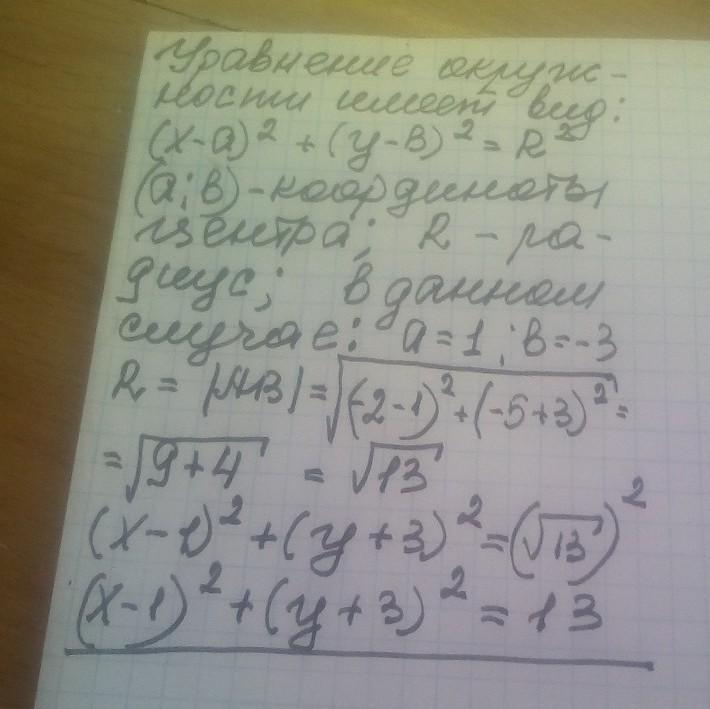 Уравнение окруж-
ности имеет вид:
(x-a)² + (y-в)² = R²
(a;в) - координаты
центра; R - ра-
диус; в данном
случае: a=1; в=-3
R = |AB| = √((-2-1)² + (-5+3)²) =
= √(9+4) = √13
(x-1)² + (y+3)² = (√13)²
(x-1)² + (y+3)² = 13